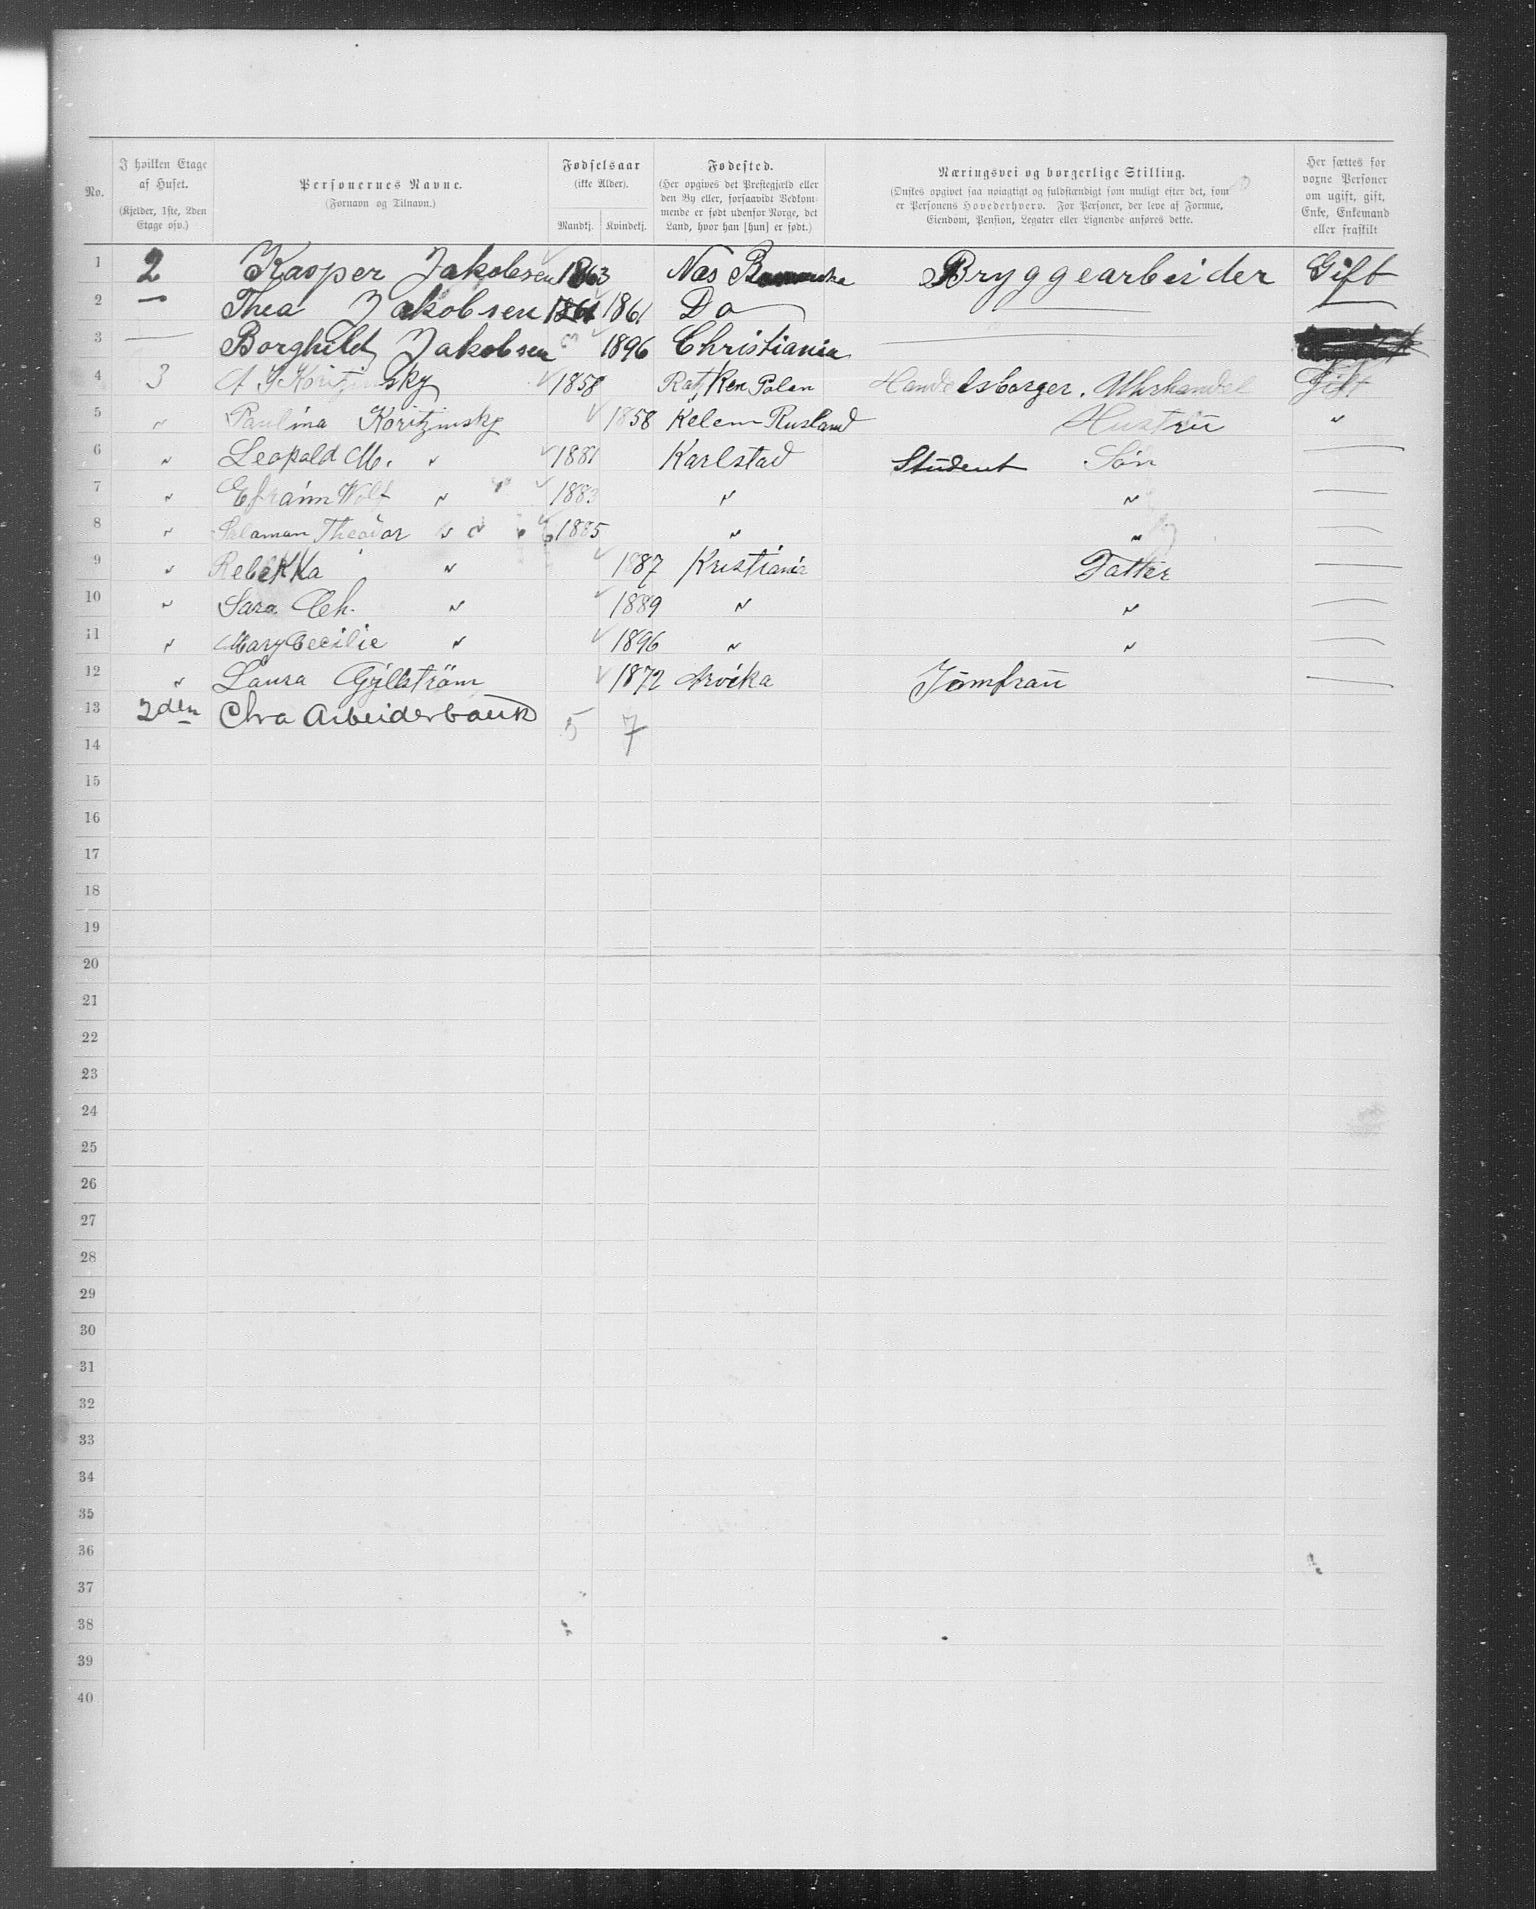 No.
I hvilken Etage af Huset.
(Kjelder, 1ste, 2den Etage osv.)
Personernes Navne.
(Fornavn og Tilnavn.)
Fødselsaar
(ikke Alder).
Mandkj. Kvindekj.
Fødested.
(Her opgives det Prestegjæld eller den By eller, forsaavidt Vedkommende er født udenfor Norge, det Land, hvor han [hun] er født.)
Næringsvei og borgerlige Stilling.
(Ønskes opgivet saa nøiagtigt og fuldstændigt som muligt efter det, som er Personens Hovederhverv. For Personer, der leve af Formue, Eiendom, Pension, Legater eller Lignende anføres dette.
Her sættes for voxne Personer om ugift, gift, Enke, Enkemand eller fraskilt
1 2 Kasper Jakobsen 1863 Næs Bryggearbeider Gift
2 — Thea Jakobsen 1861 1861 Do — —
3 — Borghild Jakobsen 1896 Christiania —
4 3 A J Koritzinsky 1858 Polen Handelsborger. Uhrhandel Gift
5 " Paulina Koritzinsky 1858 Kelem Rusland Hustru "
6 " Leopold M. " 1881 Karlstad Student Søn —
7 " Efraim Wolf " 1883 " " —
8 " Salaman Theodor " 1885 " " —
9 " Rebekka " 1887 Kristiania Datter —
10 " Sara Ch. " 1889 " " —
11 " Mary Cecilie " 1896 " " —
12 " Laura Gyllström 1872 Arvika Jomfrau —
13 2den Chra Arbeiderbank 5 7
14
15
16
17
18
19
20
21
22
23
24
25
26
27
28
29
30
31
32
33
34
35
36
37
38
39
40